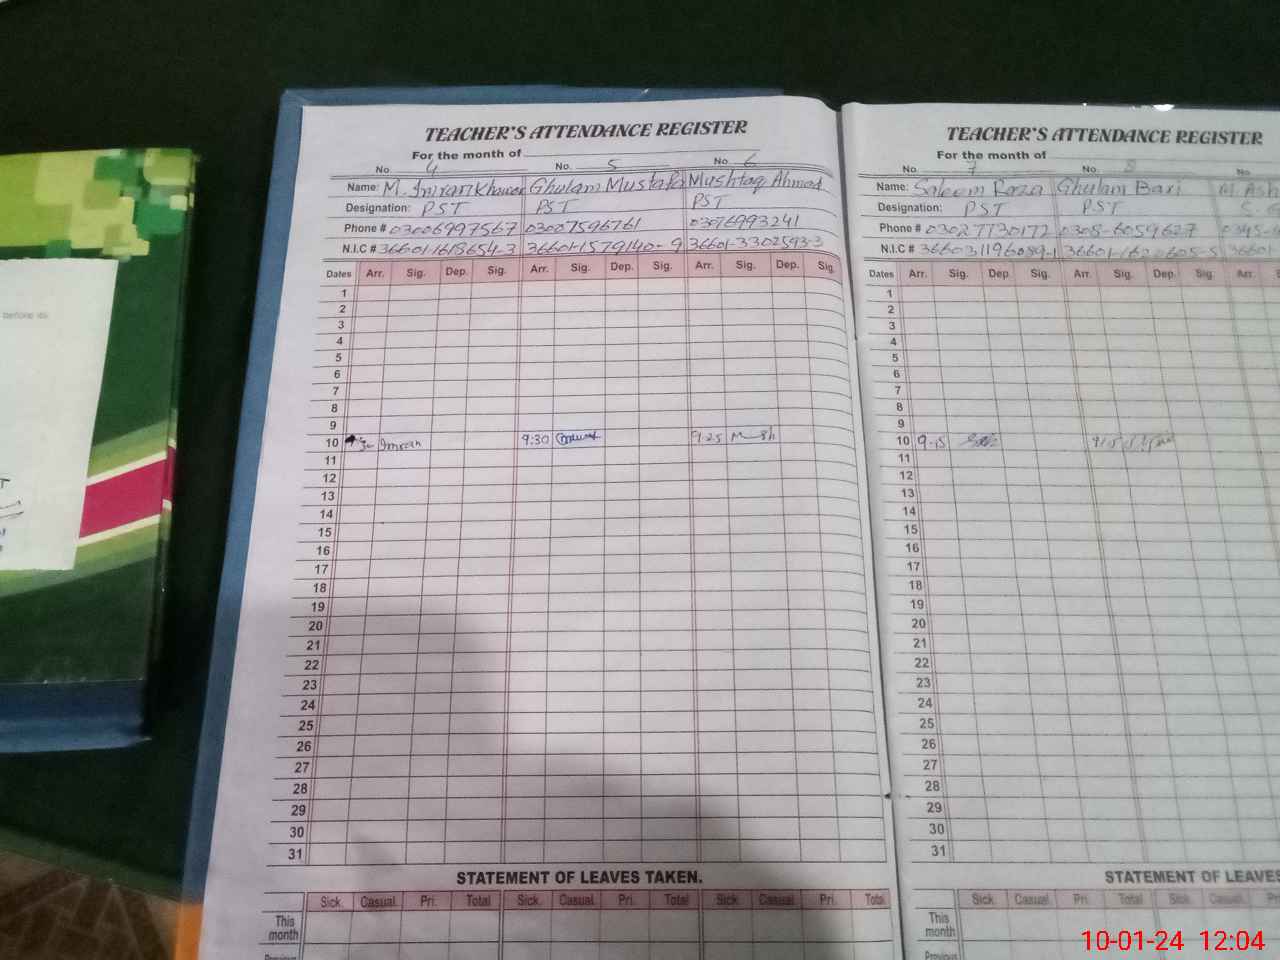 before its
TEACHER'S ATTENDANCE REGISTER
For the month of
No. 4 No. 5 No. 6
Name: M. Imran Khawer Ghulam Mustafa Mushtaq Ahmad
Designation: PST PST PST
Phone # 03006997567 03007596761 03076993241
N.I.C # 36601-1618654-3 36601-1579140-9 36601-3302593-3
Dates Arr. Sig. Dep. Sig. Arr. Sig. Dep. Sig. Arr. Sig. Dep. Sig.
1
2
3
4
5
6
7
8
9
10 Imran 9:30 9-25
11
12
13
14
15
16
17
18
19
20
21
22
23
24
25
26
27
28
29
30
31
STATEMENT OF LEAVES TAKEN.
Sick. Casual. Pri. Total Sick. Casual. Pri. Total Sick. Casual. Pri. Total
This
month
Previous
TEACHER'S ATTENDANCE REGISTER
For the month of
No. 7 No. 8 No
Name: Saleem Raza Ghulam Bari
Designation: PST PST
Phone # 03027730172 0305-6059627
N.I.C # 366031196089-1
Dates Arr. Sig. Dep. Sig. Arr. Sig. Dep. Sig. Arr.
1
2
3
4
5
6
7
8
9
10 9-15 9/15
11
12
13
14
15
16
17
18
19
20
21
22
23
24
25
26
27
28
29
30
31
STATEMENT OF LEAVES
Sick. Casual. Pri. Total Sick. Casual.
This
month
Previous
10-01-24 12:04